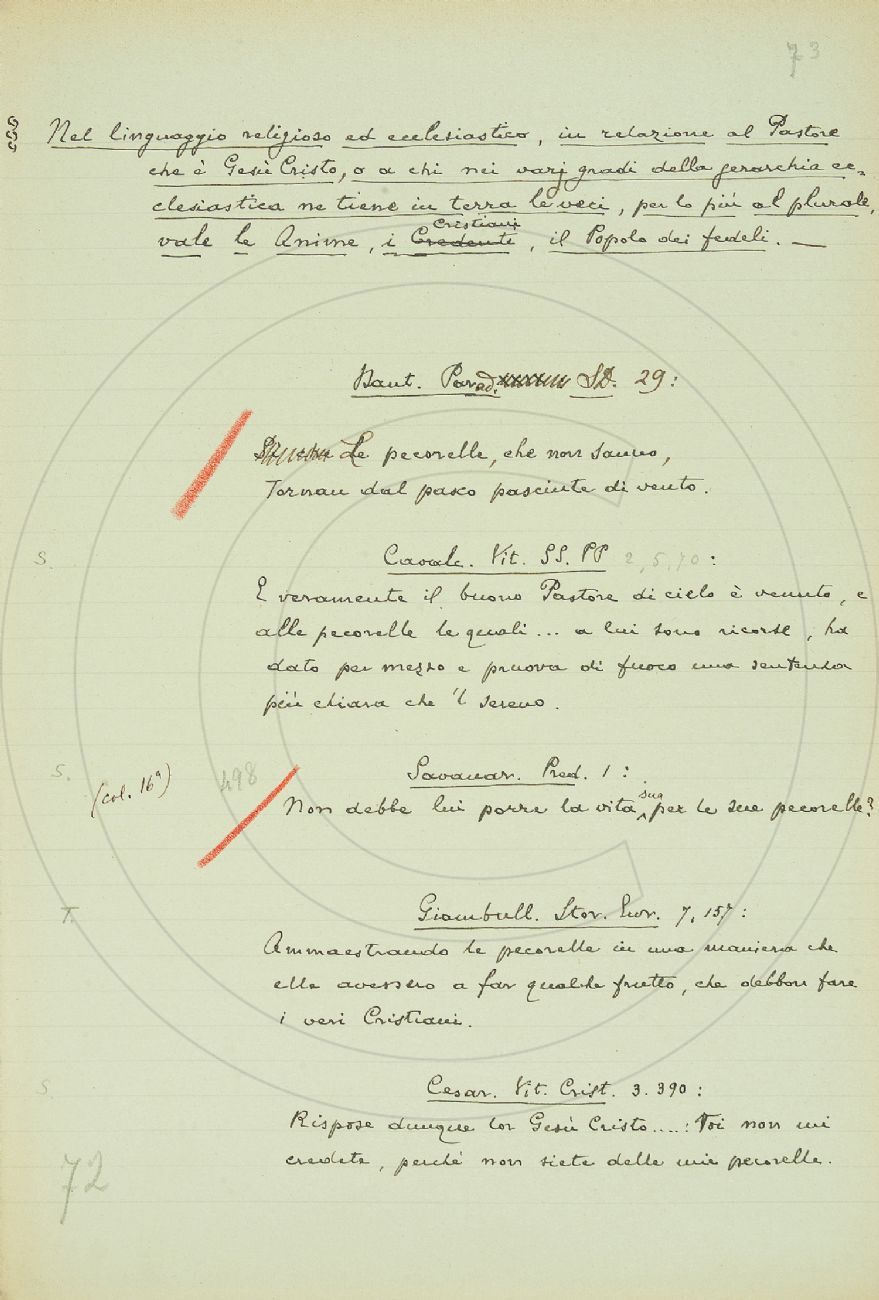 73
Nel linguaggio religioso ed ecclesiastico, in relazione al Pastore
che è Gesù Cristo, o a chi nei varj gradi della gerarchia ec-
clesiastica ne tiene in terra le veci, per lo più al plurale,
Cristiani
vale le Anime, i Credenti, il Popolo dei fedeli. —
Dant. Parad. 29:
Le pecorelle, che non sanno,
Tornan dal pasco pasciute di vento.
S. Cavalc. Vit. SS. PP 2, 5, 70:
E veramente il buono Pastore di cielo è venuto, e
alle pecorelle le quali ... a lui sono ricorse, ha
dato per mezzo e pruova di fuoco una sentenza
più chiara che 'l sereno.
S. (col. 16ª) 498 Savonar. Pred. 1:
Non debbe lui porre la vita sua per le sue pecorelle?
T. Giambull. Stor. Eur. 7, 157:
Ammaestrando le pecorelle in una maniera che
elle avessero a far qualche frutto, che debbon fare
i veri Cristiani.
S. Cesar. Vit. Crist. 3. 390:
Rispose dunque lor Gesù Cristo....: Voi non mi
credete, perchè non siete delle mie pecorelle.
72